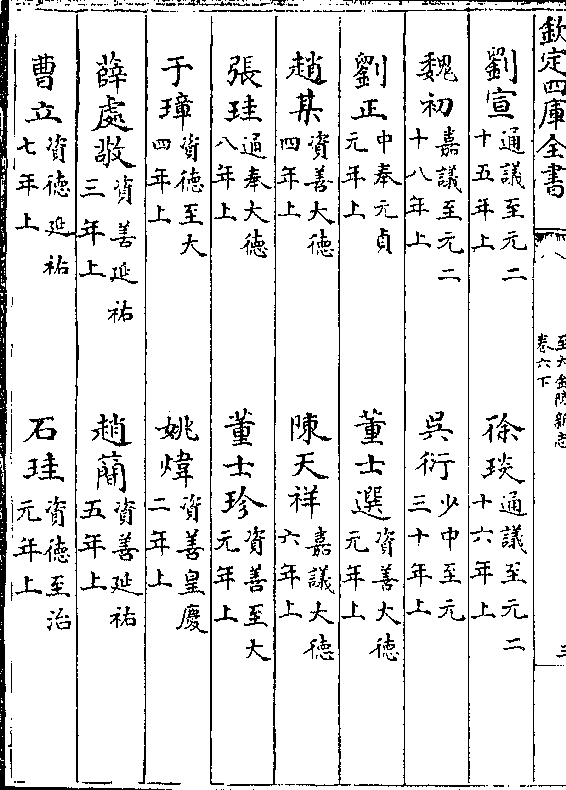 欽定四庫全書
至大金陵新志
卷六下
三
劉宣通議至元二十五年上 徐琰通議至元二十六年上
魏初嘉議至元二十八年上 吳衍少中至元三十年上
劉正中奉元貞元年上 董士選資善大德元年上
趙某資善大德四年上 陳天祥嘉議大德六年上
張珪通奉大德八年上 董士珍資善至大元年上
于璋資德至大四年上 姚煒資善皇慶二年上
薛處敬資善延祐三年上 趙蕑資善延祐五年上
曹立資德延祐七年上 石珪資德至治元年上